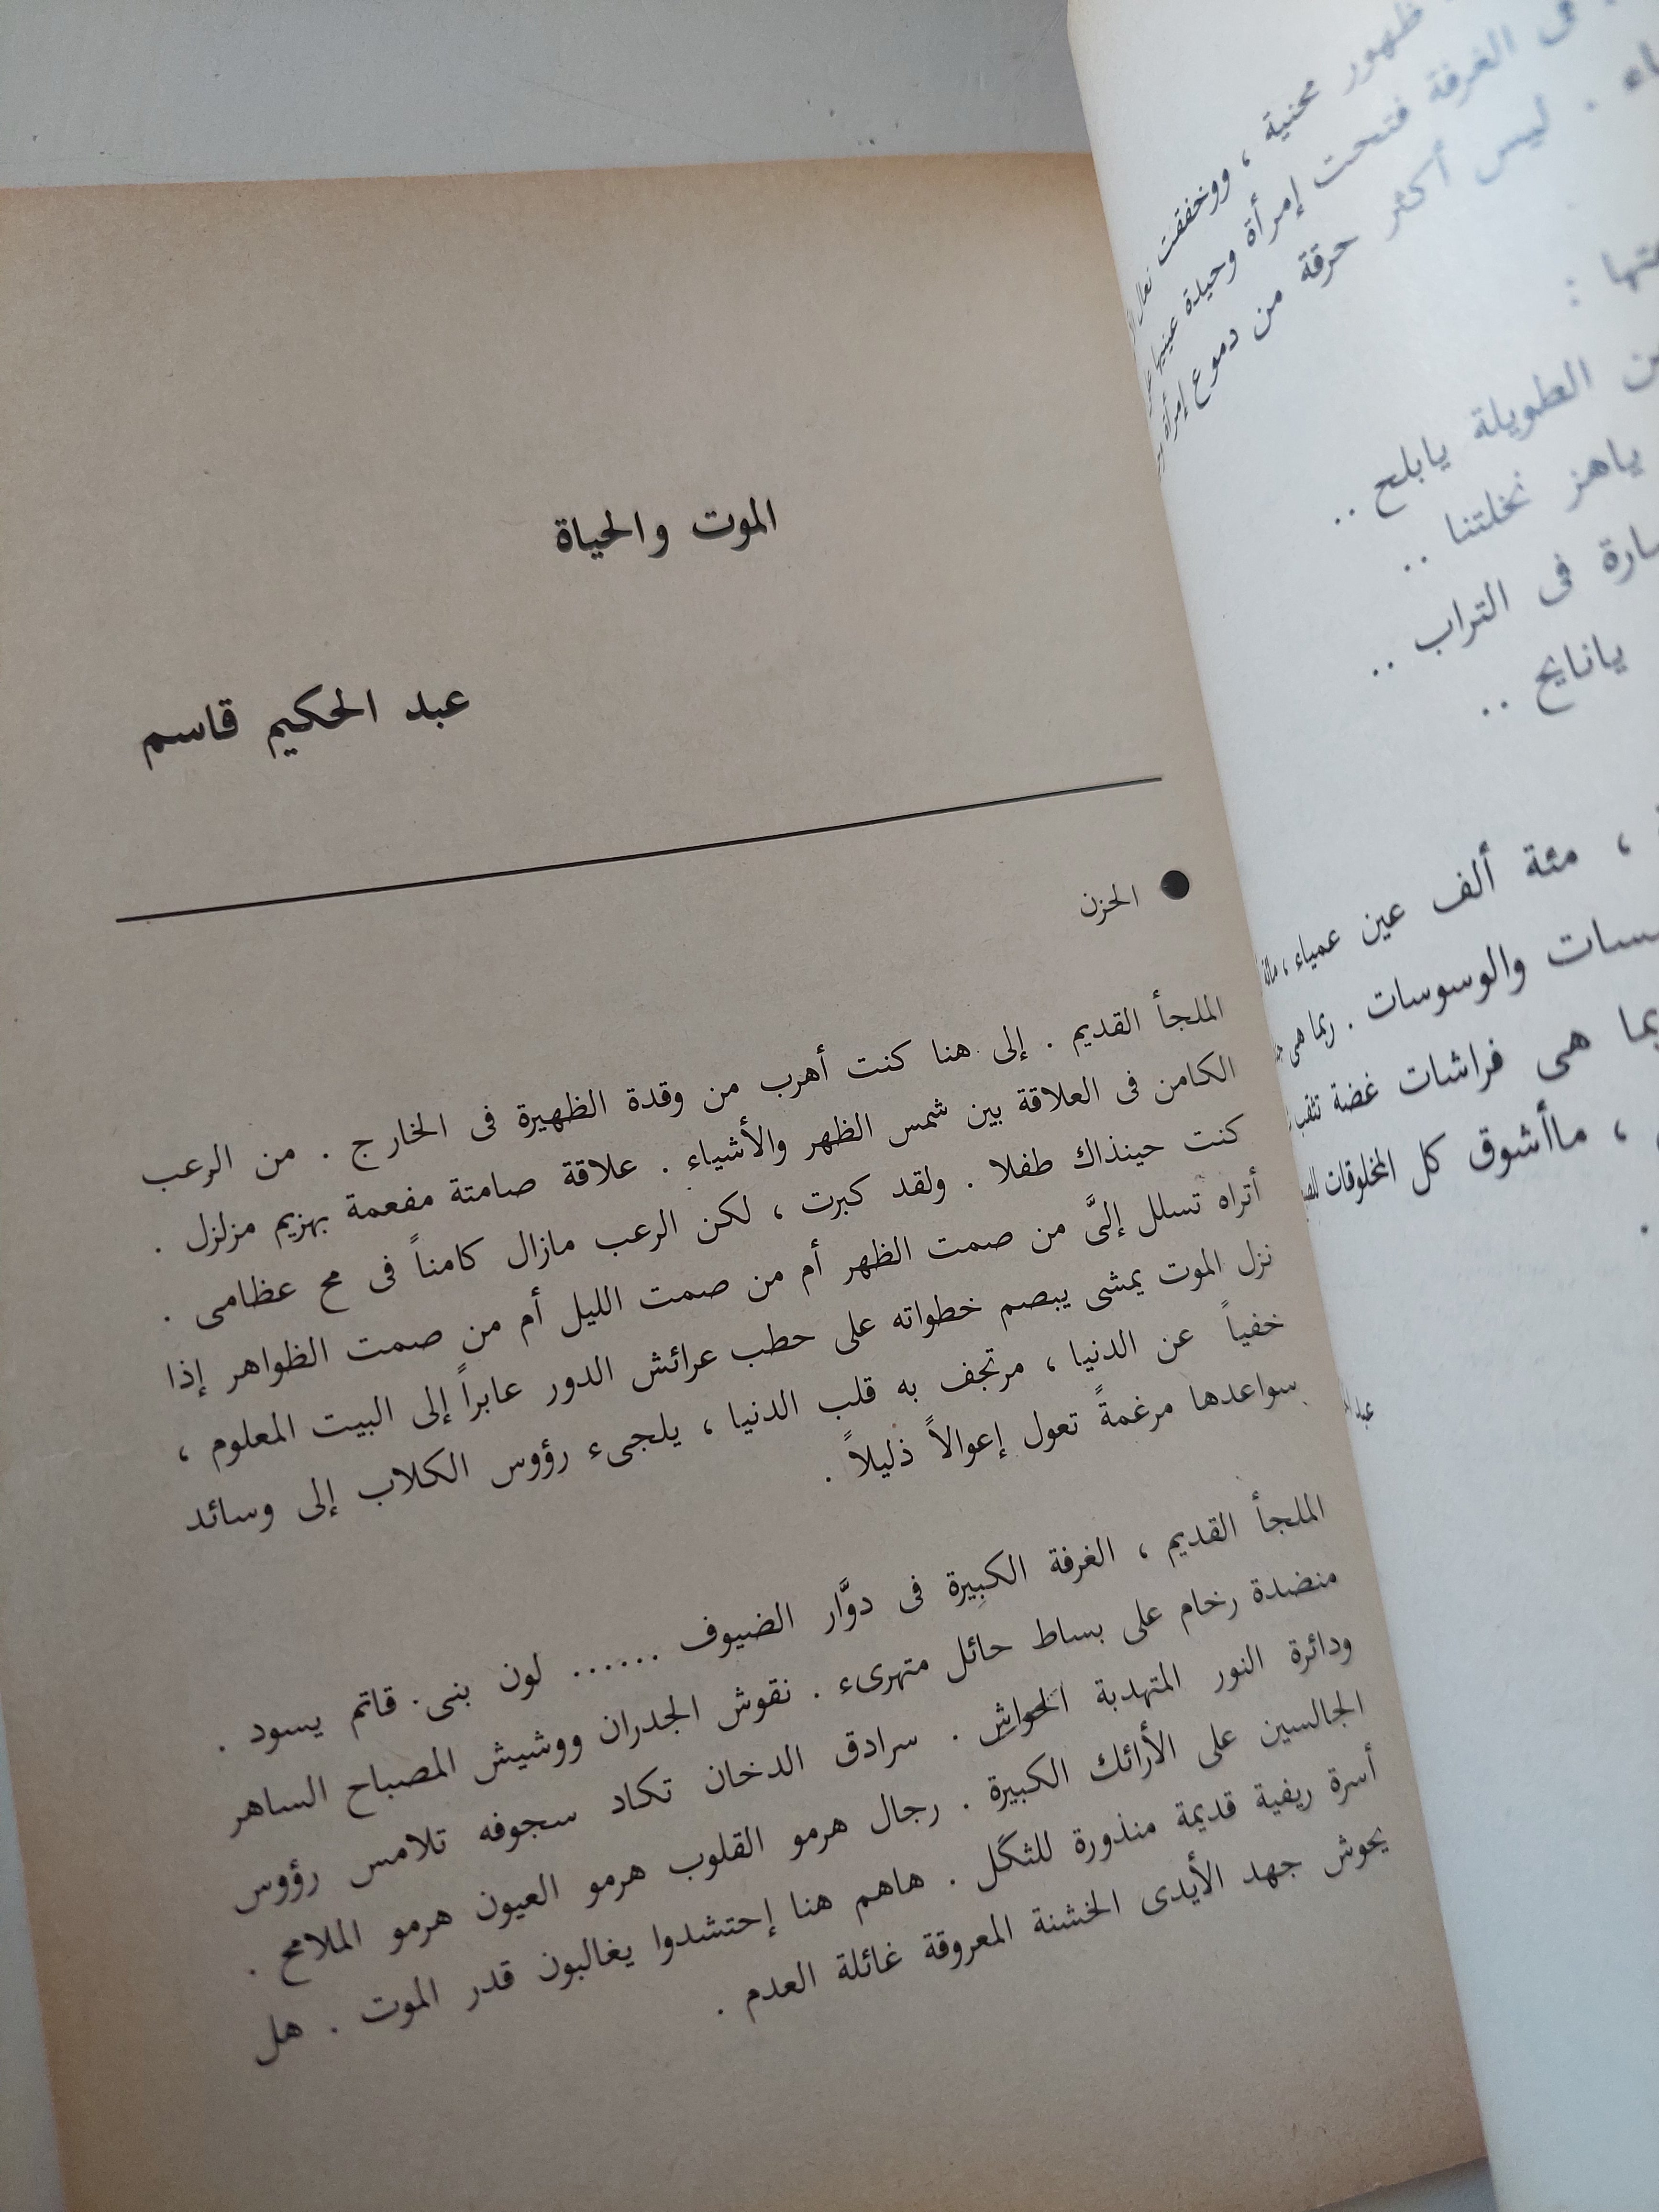 الموت والحياة
عبد الحكيم قاسم
● الحزن
الملجأ القديم . إلى هنا كنت أهرب من وقدة الظهيرة فى الخارج . من الرعب
الكامن فى العلاقة بين شمس الظهر والأشياء . علاقة صامتة مفعمة بهزيم مزلزل .
كنت حينذاك طفلا . ولقد كبرت ، لكن الرعب مازال كامناً فى مخ عظامى .
أتراه تسلل إلىَّ من صمت الظهر أم من صمت الليل أم من صمت الظواهر إذا
نزل الموت يمشى يبصم خطواته على حطب عرائش الدور عابراً إلى البيت المعلوم ،
خفياً عن الدنيا ، مرتجف به قلب الدنيا ، يلجىء رؤوس الكلاب إلى وسائد
سواعدها مرغمةً تعول إعوالاً ذليلاً .
الملجأ القديم ، الغرفة الكبيرة فى دوَّار الضيوف ...... لون بنى قاتم يسود .
منضدة رخام على بساط حائل متهرىء . نقوش الجدران ووشيش المصباح الساهر
ودائرة النور المتهدبة الحواش . سرادق الدخان تكاد سجوفه تلامس رؤوس
الجالسين على الأرائك الكبيرة . رجال هرمو القلوب هرمو العيون هرمو الملامح .
أسرة ريفية قديمة منذورة للثكل . هاهم هنا إحتشدوا يغالبون قدر الموت . هل
يحوش جهد الأيدى الخشنة المعروقة غائلة العدم .
ظهور محنية ، ووخفقت نعال
فى الغرفة فتحت إمرأة وحيدة عينيها
. ليس أكثر حرقة من دموع إمرأة
:
الطويلة يابلح ..
ياهز نخلتنا ..
فى التراب ..
يانايح ..
، مئة ألف عين عمياء ،
والوسوسات . ربما هى
هى فراشات غضة تثقب
، ماأشوق كل المخلوقات
.
عبد